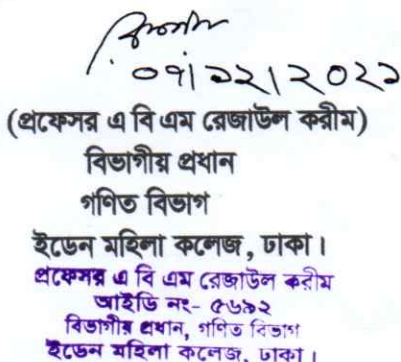 ০৭/১২/২০২১
(প্রফেসর এ বি এম রেজাউল করীম)
বিভাগীয় প্রধান
গণিত বিভাগ
ইডেন মহিলা কলেজ, ঢাকা।
প্রফেসর এ বি এম রেজাউল করীম
আইডি নং- ৫৬৯২
বিভাগীয় প্রধান, গণিত বিভাগ
ইডেন মহিলা কলেজ, ঢাকা।